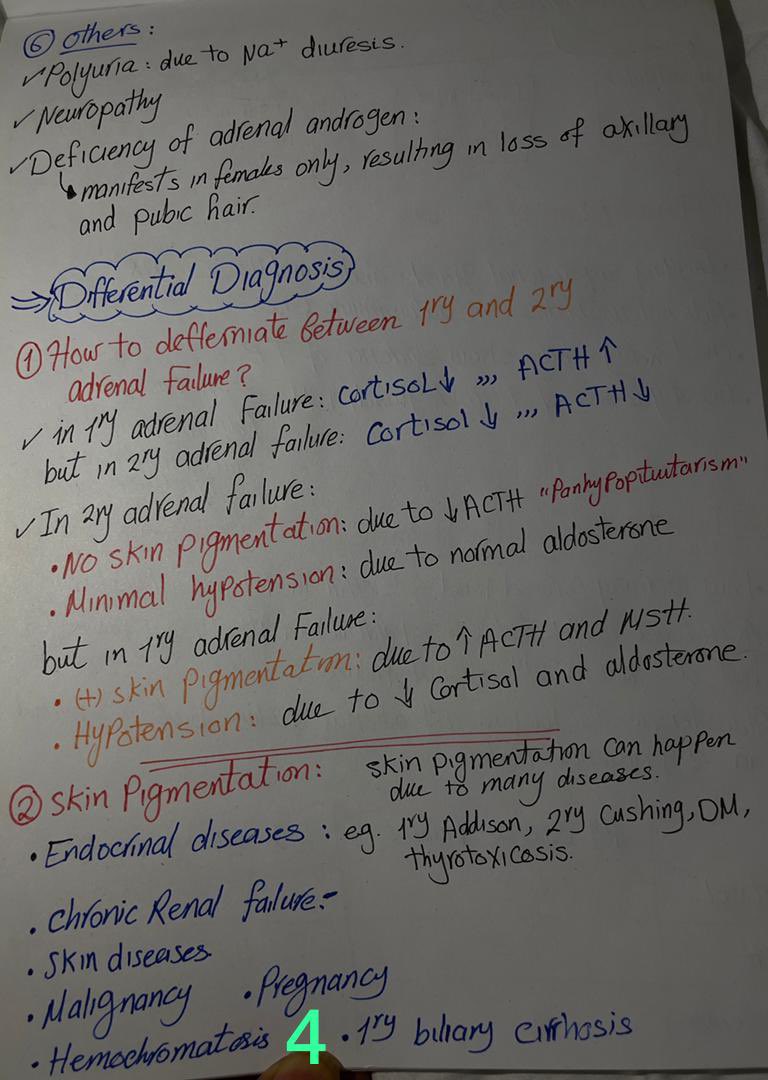 ⑥ others:
✓Polyuria: due to Na+ diuresis.
✓Neuropathy
✓Deficiency of adrenal androgen:
↳manifests in females only, resulting in loss of axillary
and pubic hair.
⇒Differential Diagnosis
① How to defferniate between 1ry and 2ry
adrenal failure?
✓ in 1ry adrenal Failure: Cortisol↓ ,,, ACTH↑
but in 2ry adrenal failure: Cortisol ↓ ,,, ACTH↓
✓In 2ry adrenal failure:
•No skin pigmentation: due to ↓ACTH "Panhypopituitarism"
•Minimal hypotension: due to normal aldosterone
but in 1ry adrenal Failure:
• (+) skin pigmentation: due to ↑ ACTH and MSH.
• Hypotension: due to ↓ Cortisol and aldosterone.
② Skin Pigmentation: skin pigmentation can happen
due to many diseases.
• Endocrinal diseases: eg. 1ry Addison, 2ry Cushing, DM,
thyrotoxicosis.
• Chronic Renal failure:-
• Skin diseases
• Malignancy • Pregnancy
• Hemochromatosis • 1ry biliary cirrhosis
4